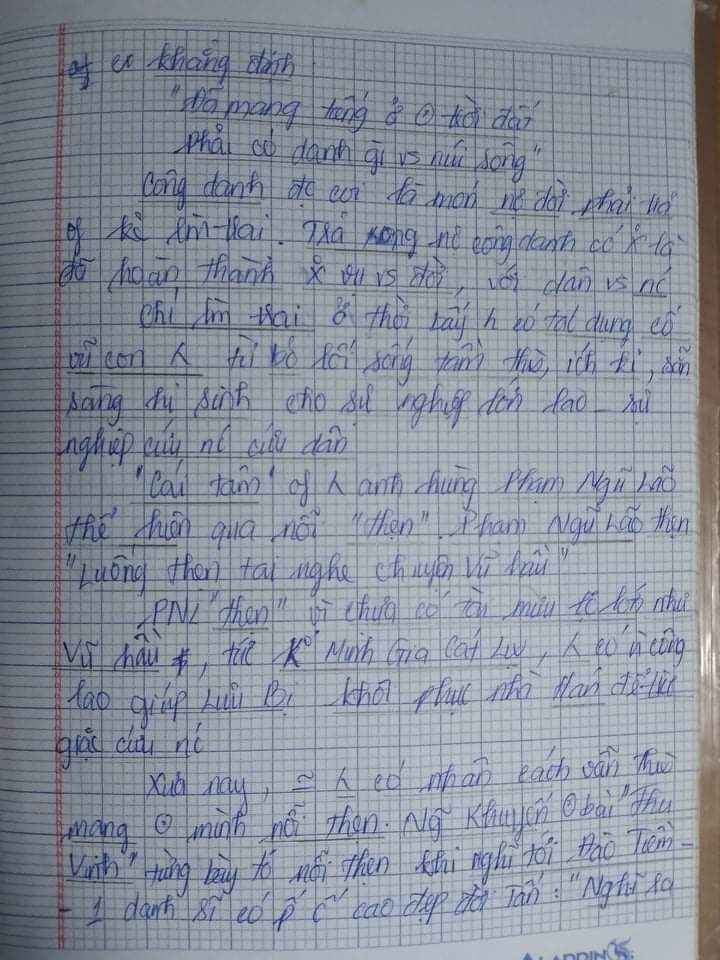 of ... khẳng định
"Đã mang tiếng ở ⊙ trời đất
Phải có danh gì vs núi sông"
Công danh đc coi là món nợ đời phải trả
of kẻ lm-trai. Trả xong nợ công danh có X là
đã hoàn thành X vụ vs đời, với dân vs nc
Chí lm trai ở thời bấy h có tác dụng cổ
vũ con ʎ từ bỏ lối sống tầm thường, ích kỉ, sẵn
sàng hi sinh cho sự nghiệp lớn lao - sự
nghiệp cứu nc cứu dân
"Cái tâm" of ʎ anh hùng Phạm Ngũ Lão
thể hiện qua nỗi "thẹn". Phạm Ngũ Lão thẹn
"Luống thẹn tai nghe chuyện Vũ hầu"
PNL "thẹn" vì chưa có tài mưu lc lớn như
Vũ hầu, tức Kổ Minh Gia Cát Lượng, ʎ có n công
lao giúp Lưu Bị khôi phục nhà Hán để trừ
giặc cứu nc
Xưa nay, = ʎ có nhân cách vẫn thường
mang ⊙ mình nỗi thẹn. Ng~ Khuyến ⊙ bài "Thu
Vịnh" từng bày tỏ nỗi thẹn khi nghĩ tới Đào Tiềm -
- 1 danh sĩ có p' c' cao đẹp đời Tấn: "Nghĩ ra
ALADDIN